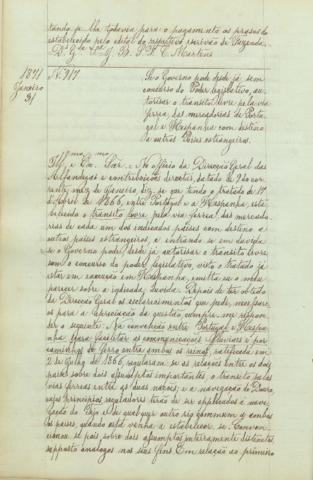 tando-se-lhe todavia para o pagamento os prasos do
estabelecido pelo edital do respectivo escrivão de Fazenda.
1871
Janeiro
31
N. 917
Se o Governo pode desde já, sem
concurso do Poder legislativo, au-
torisar o transito livre pela via
ferrea, das mercadorias de Portu-
gal e Hespanha com destino
a outros Paizes estrangeiros.
Ill.mo e Ex.mo Snr. No officio da Direcção Geral das
Alfandegas e contribuições directas, datado de 9 do cor-
rente mez de Janeiro, diz-se que tendo o tratado de 27
d'Abril de 1866, entre Portugal e a Hespanha, esta-
belecido o transito livre, pela via ferrea, das mercado-
rias de cada um dos indicados paizes com destino a
outros paizes estrangeiros, e entrando-se em duvida
se o Governo pode desde já autorisar o transito livre,
sem o concurso do poder legislativo, visto o tratado já
estar em execução em Hespanha, emitta eu o meu
parecer sobre a indicada duvida. Depois de ter obtido
da Direcção Geral os esclarecimentos que pedi,
para a apreciação da questão, cumpre-me respon-
der o seguinte. Na convenção entre Portugal e Hespa-
nha para facilitar as communicações fluviaes e por
caminhos de ferro entre ambos os reinos, ratificada em
2 de Julho de 1866, regularam-se as relações entre os dois
paizes sobre dois assumptos importantes, o transito pelas
vias ferreas entre as duas nações, e a navegação do Douro,
cujos principios reguladores terão de ser applicados á nave-
gação do Tejo e de qualquer outro rio commum a ambos
os paizes, quando esta venha a estabelecer-se. Conven-
cionou-se pois sobre dois assumptos inteiramente distinctos,
supposto analogos nos seus fins. Em relação ao primeiro